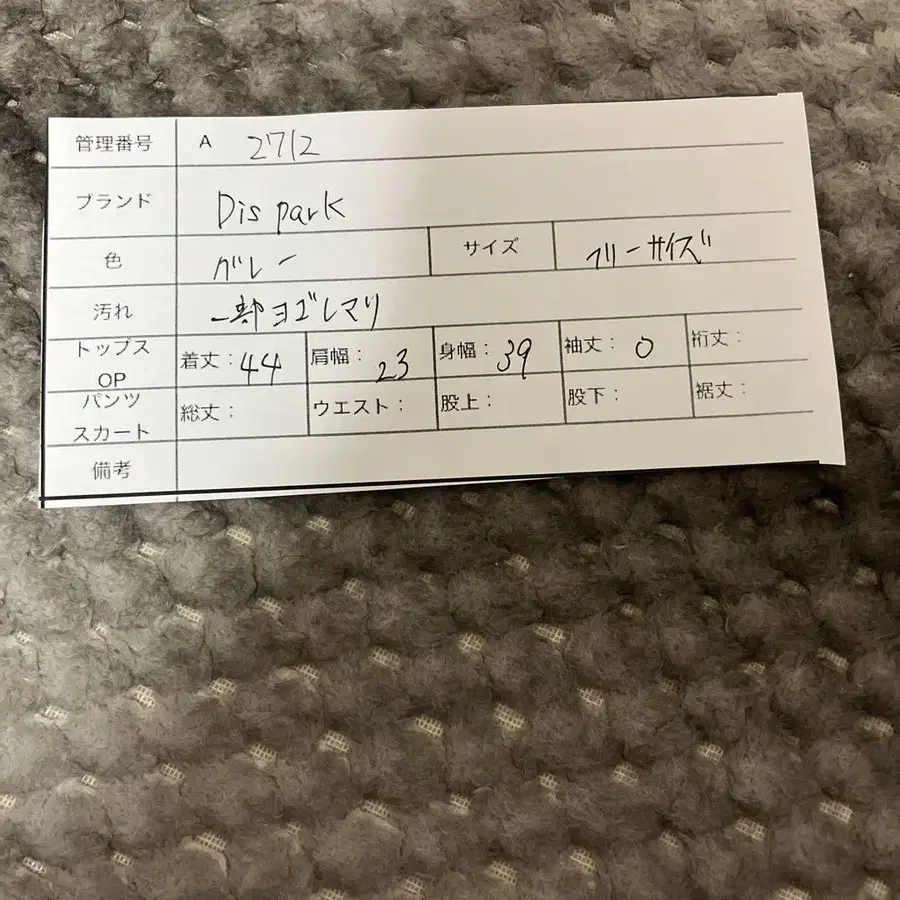 管理番号 A 2712
ブランド Dis park
色 グレー サイズ フリーサイズ
汚れ 一部ヨゴレアリ
トップス OP 着丈：44 肩幅：23 身幅：39 袖丈：0 裄丈：
パンツ スカート 総丈： ウエスト： 股上： 股下： 裾丈：
備考